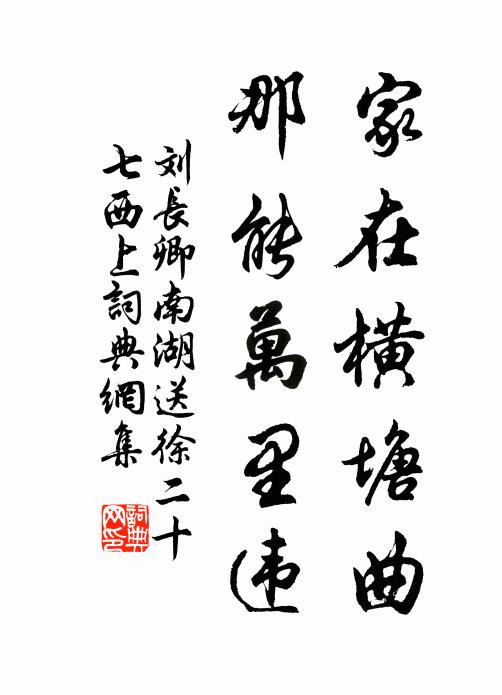 家在橫塘曲
那能萬里违
刘長卿南湖送徐二十
七西上詞典網集
詞典网印